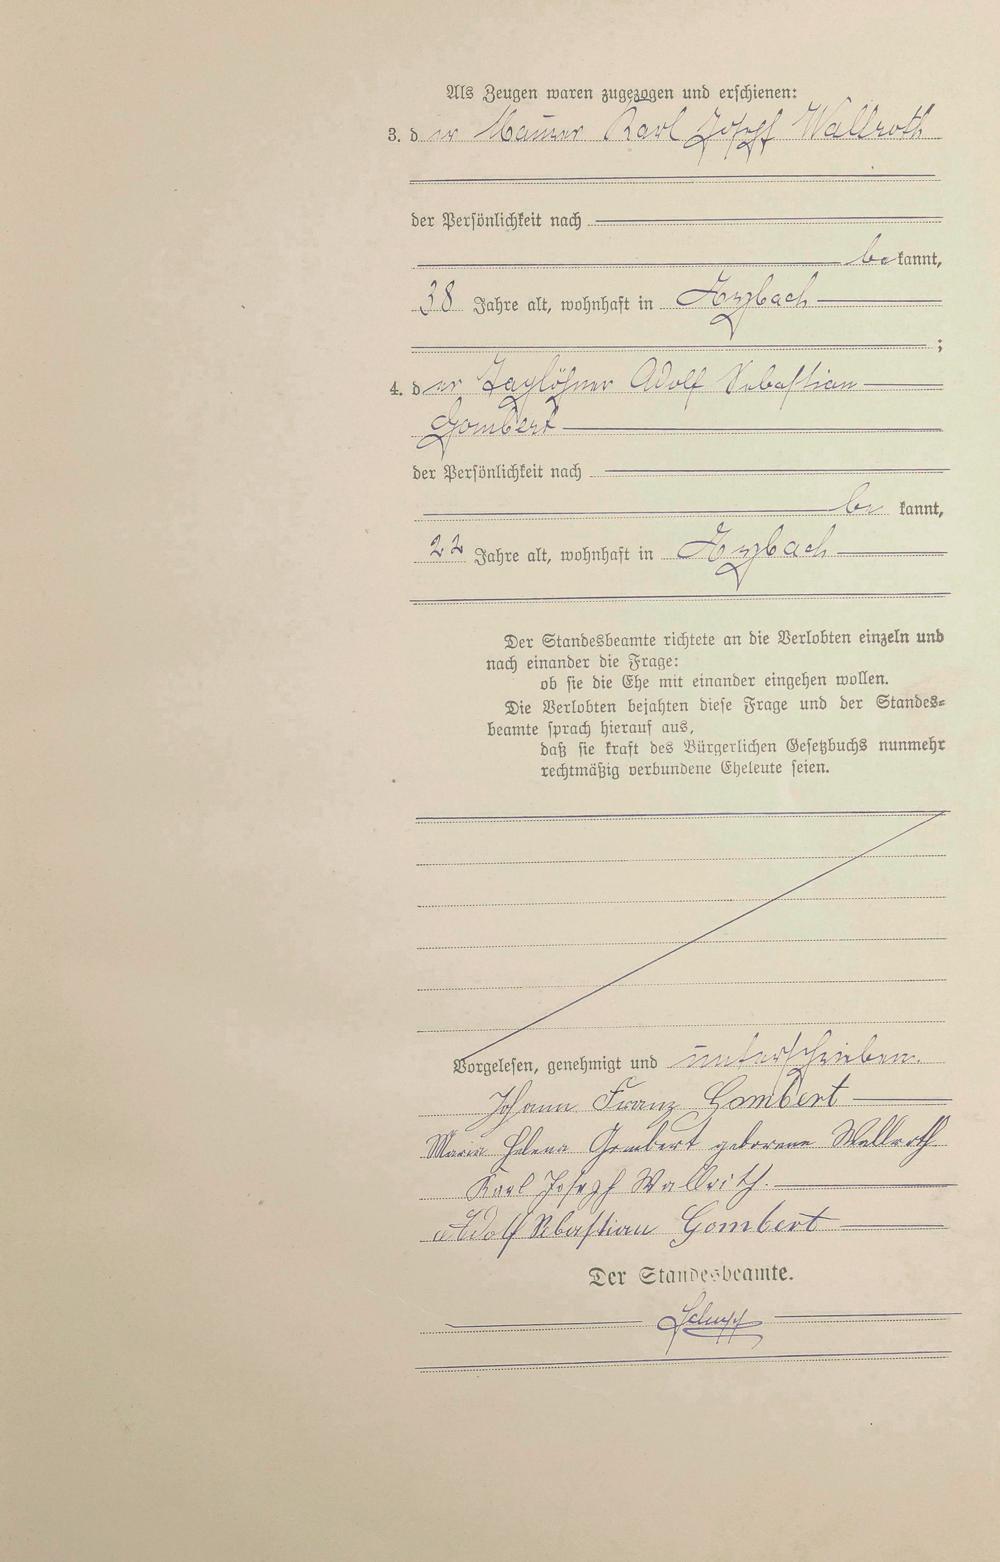 Als Zeugen waren zugezogen und erschienen:
3. der Maurer Karl Josef Wallroth
der Persönlichkeit nach
bekannt,
38 Jahre alt, wohnhaft in
;
4. der Taglöhner Adolf Sebastian
Gombert
der Persönlichkeit nach
be kannt,
22 Jahre alt, wohnhaft in
Der Standesbeamte richtete an die Verlobten einzeln und
nach einander die Frage:
ob sie die Ehe mit einander eingehen wollen.
Die Verlobten bejahten diese Frage und der Standes=
beamte sprach hierauf aus,
daß sie kraft des Bürgerlichen Gesetzbuchs nunmehr
rechtmäßig verbundene Eheleute seien.
Vorgelesen, genehmigt und unterschrieben.
Johann Franz Gombert
Maria Helena Gombert geborene Wallroth
Karl Joseph Wallroth.
Adolf Sebastian Gombert
Der Standesbeamte.